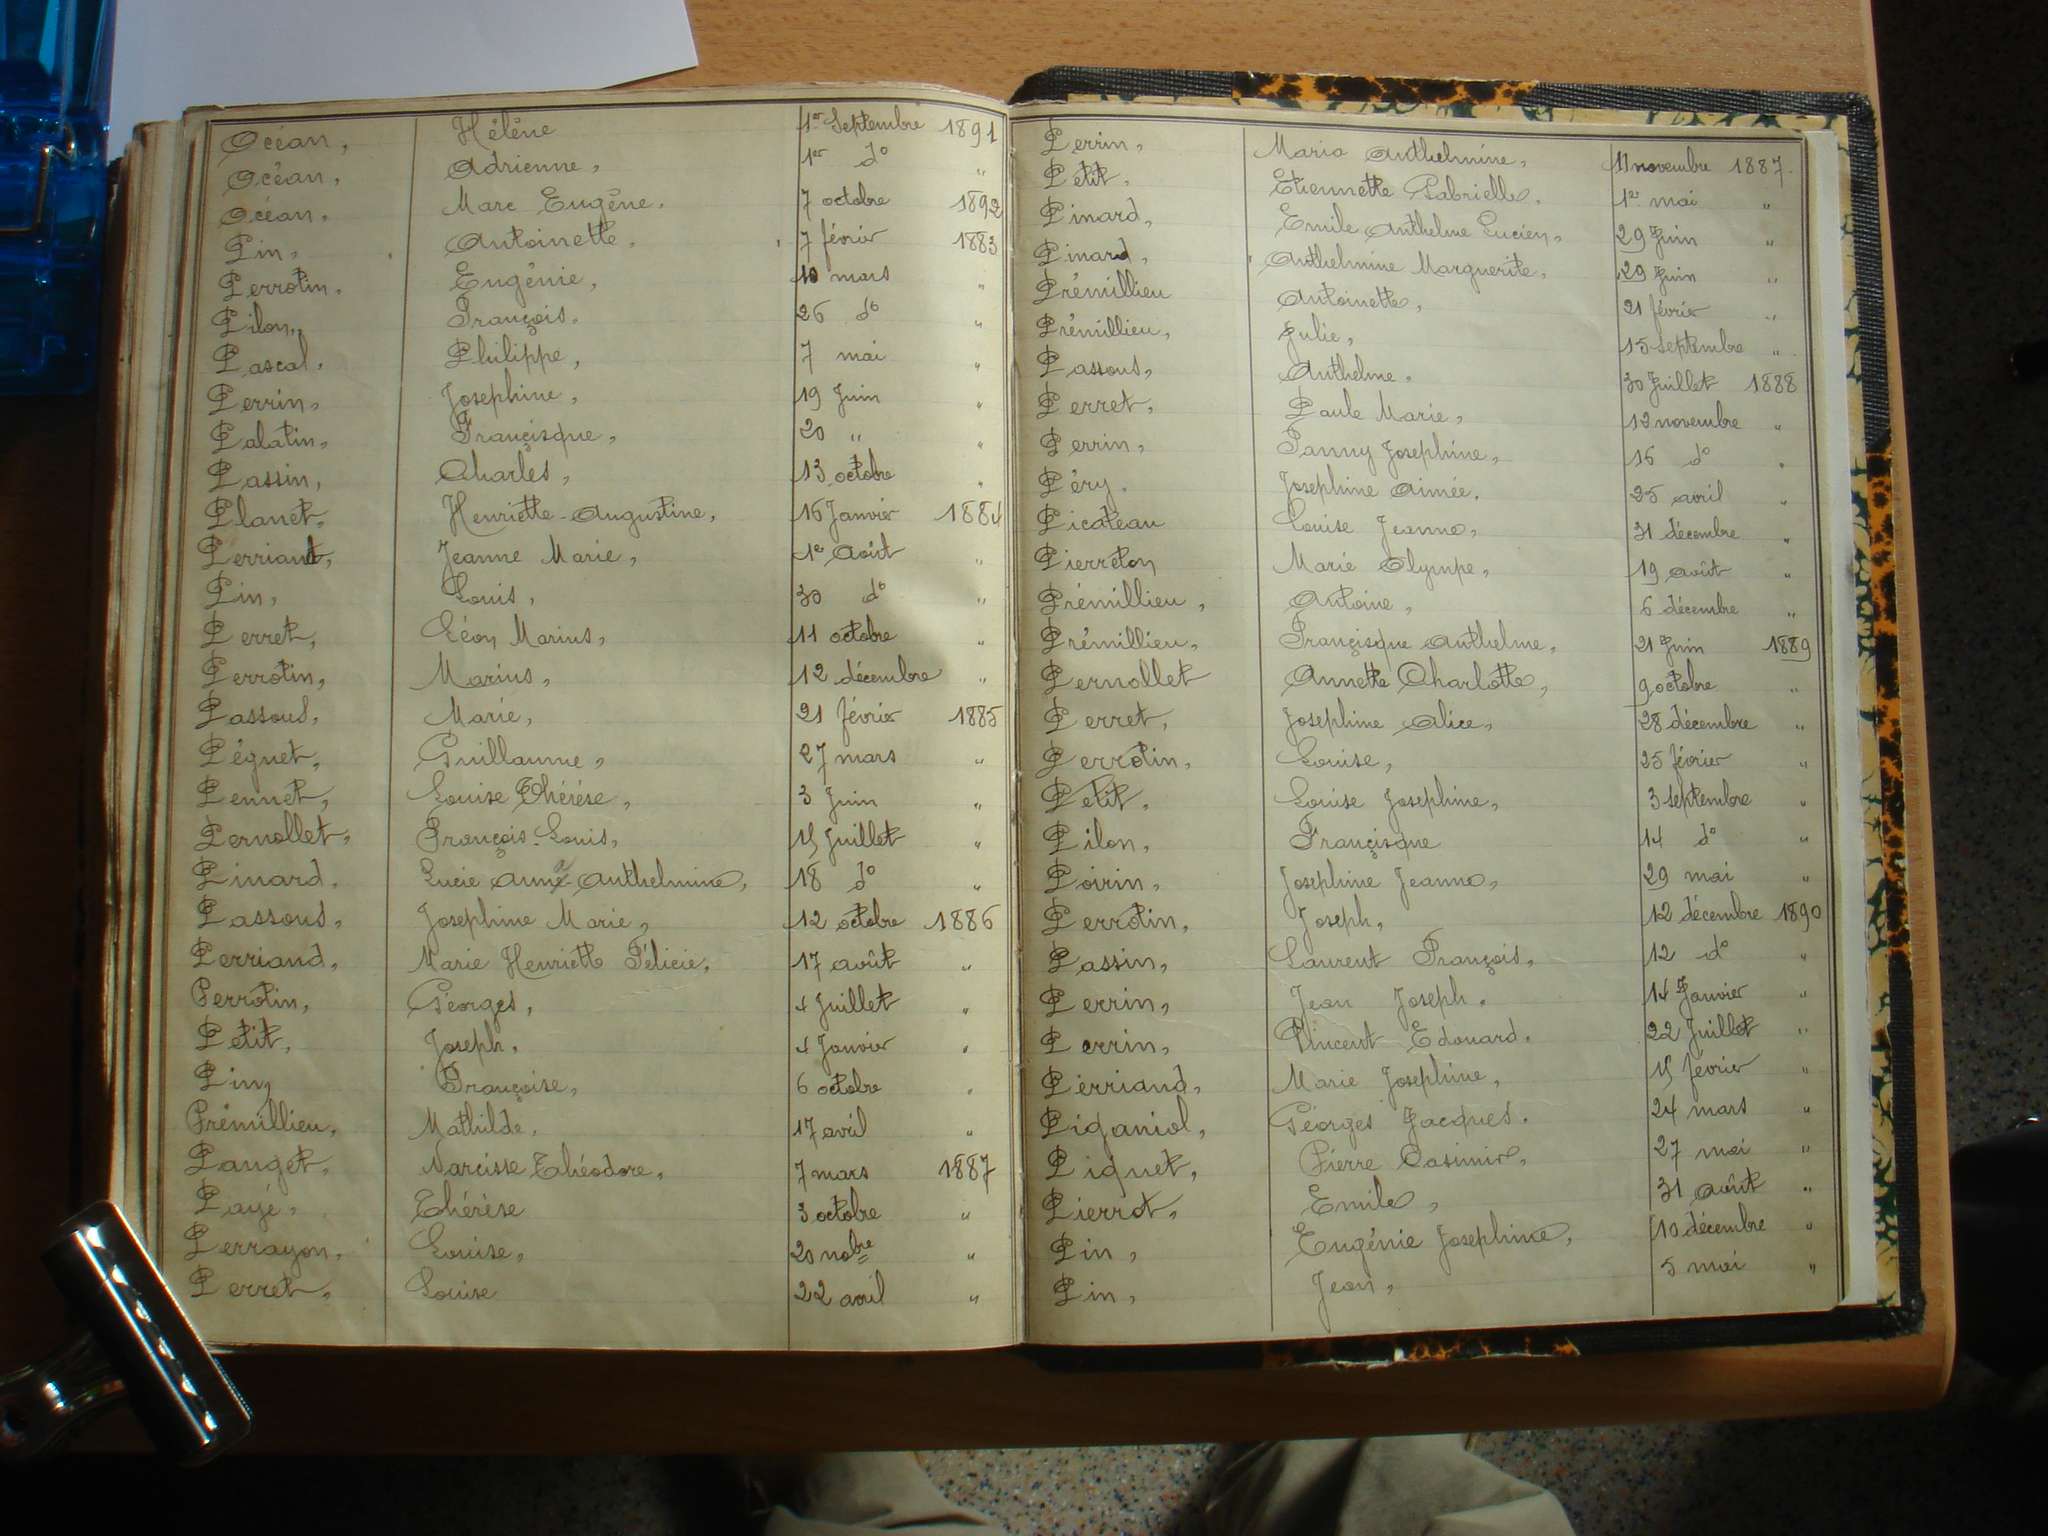 Océan, Hélène 1er Septembre 1891
Océan, Adrienne, 1er do "
Océan, Marc Eugène. 7 octobre 1892
Pin, Antoinette. 7 février 1883
Perrotin. Eugénie, 10 mars "
Pilon, François. 26 do "
Pascal. Philippe, 7 mai "
Perrin, Josephine, 19 Juin "
Palatin, Françisque, 20 " "
Passin, Charles, 13 octobre "
Planet, Henriette-Augustine, 16 Janvier 1884
Perriand, Jeanne Marie, 1e Août "
Pin, Louis, 30 do "
Perret, Léon Marius, 11 octobre "
Perrotin, Marius, 12 décembre "
Passoud, Marie, 21 février 1885
Péguet, Guillaume, 27 mars "
Pennet, Louise Thérèse, 3 Juin "
Pernollet, François-Louis, 15 Juillet "
Pinard. Lucie Anthelmine, 18 do "
Passoud, Josephine Marie, 12 octobre 1886
Perriand, Marie Henriette Félicie, 17 août "
Perrotin, Georges, 4 Juillet "
Petit, Joseph, 4 Janvier "
Pin, Françoise, 6 octobre "
Prémillieu, Mathilde, 17 avril "
Pauget, Narcisse Théodore, 7 mars 1887
Payé, Thérèse 3 octobre "
Perrayon, Louise, 20 nobre "
Perret, Louise 22 avril "
Perrin, Maria Anthelmine, 11 novembre 1887.
Petit. Etiennette Gabrielle. 1er mai "
Pinard, Emile Anthelme Lucien, 29 Juin "
Pinard, Anthelmine Marguerite, 29 Juin "
Prémillieu Antoinette, 21 février "
Prémillieu, Julie, 15 septembre "
Passoud, Anthelme, 30 Juillet 1888
Perret, Paule Marie, 12 novembre "
Perrin, Fanny Josephine, 16 do "
Péry. Josephine Aimée. 25 avril "
Picateau Louise Jeanne, 31 décembre "
Pierreton Marie Olympe, 19 août "
Prémillieu, Antoine, 6 décembre "
Prémillieu, Françisque Anthelme, 21 Juin 1889
Pernollet Annette Charlotte, 9 octobre "
Perret, Josephine Alice, 28 décembre "
Perrotin, Louise, 25 février "
Petit, Louise Josephine, 3 septembre "
Pilon, Françisque 14 do "
Poirin, Josephine Jeanne, 29 mai "
Perrotin, Joseph, 12 décembre 1890
Passin, Laurent François, 12 do "
Perrin, Jean Joseph. 14 Janvier "
Perrin, Vincent Edouard. 22 Juillet "
Perriand, Marie Josephine, 15 février "
Piganiol, Géorges Jacques. 24 mars "
Piguet, Pierre Casimir, 27 mai "
Pierrot, Emile, 31 août "
Pin, Eugénie Josephine, 10 décembre "
Pin, Jean, 5 mai "